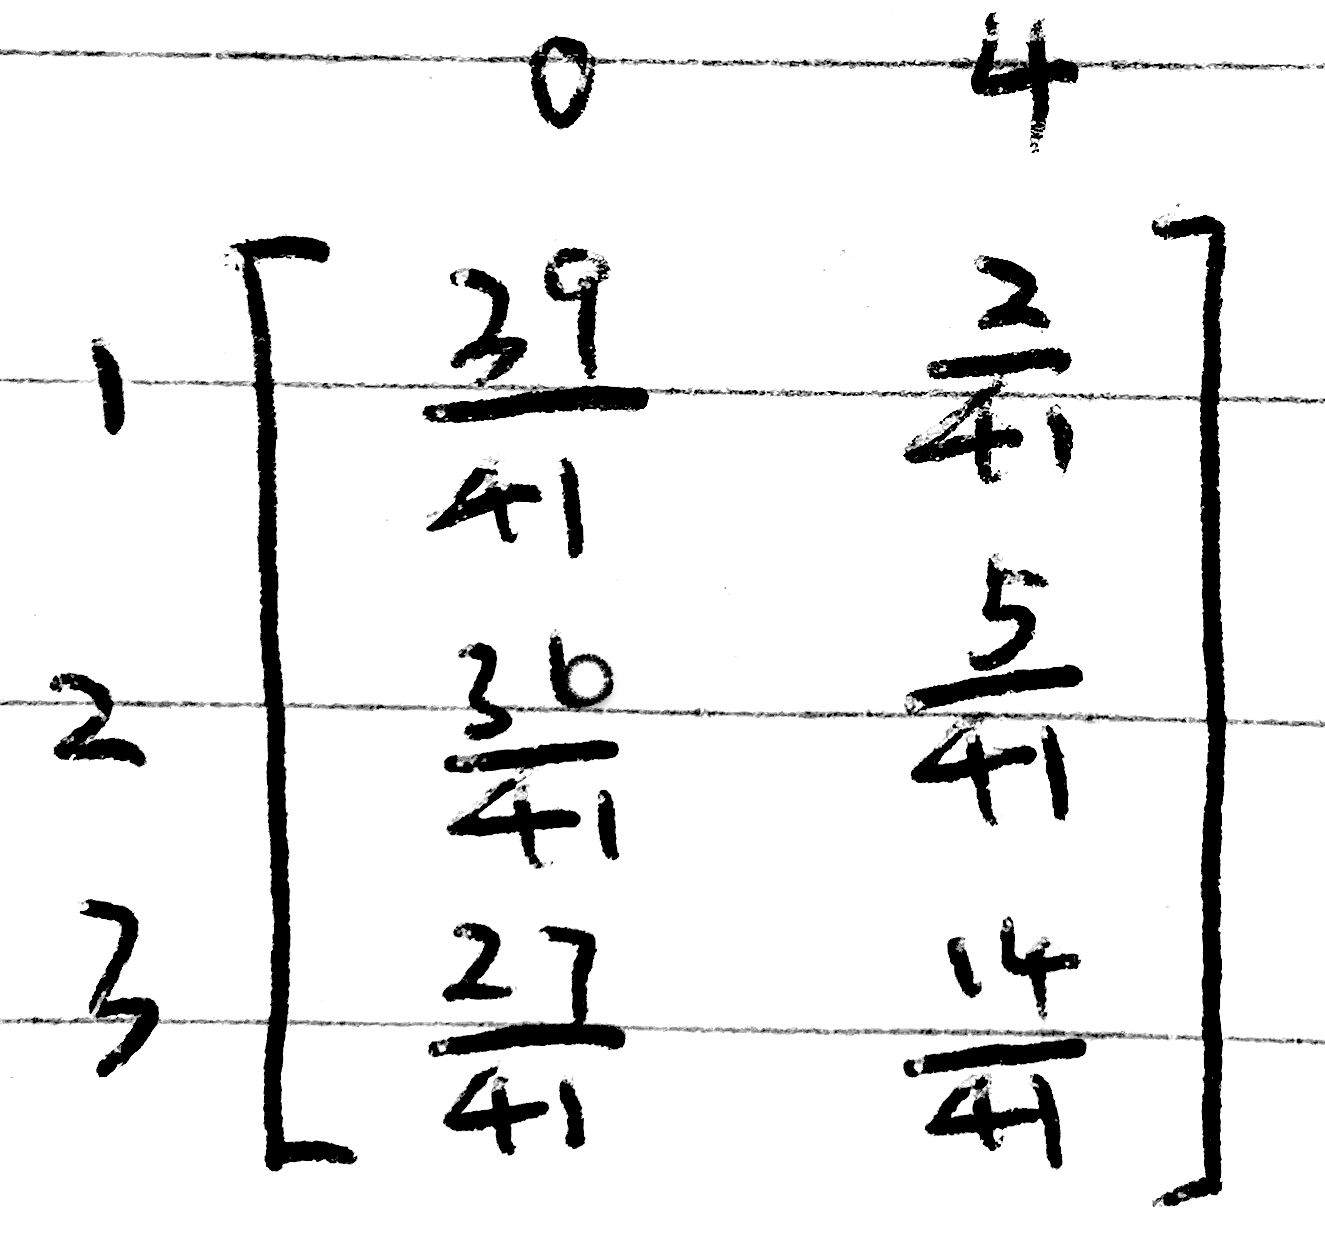 0 4
1 39/41 2/41
2 36/41 5/41
3 27/41 14/41